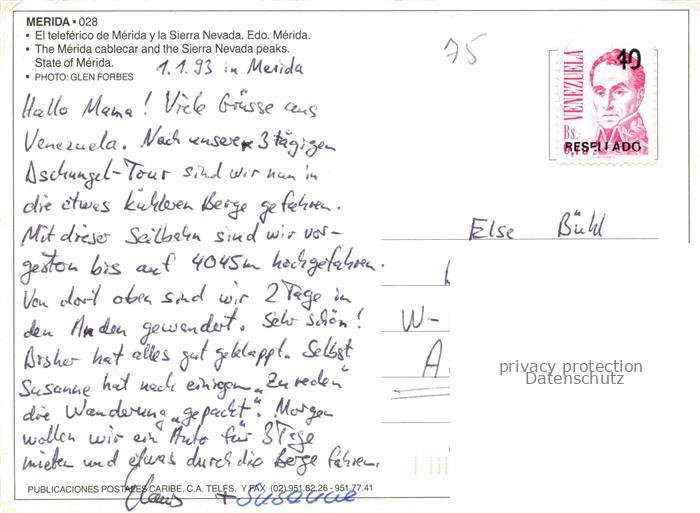 MERIDA • 028
• El teleférico de Mérida y la Sierra Nevada. Edo. Mérida.
• The Mérida cablecar and the Sierra Nevada peaks.
State of Mérida.
• PHOTO: GLEN FORBES
75
1.1.93 in Merida
Hallo Mama! Viele Grüsse aus
Venezuela. Nach unserer 3 tägigen
Dschungel-Tour sind wir nun in
die etwas kühleren Berge gefahren.
Mit dieser Seilbahn sind wir vor-
gestern bis auf 4045m hochgefahren.
Von dort oben sind wir 2 Tage in
den Anden gewandert. Sehr schön!
Bisher hat alles gut geklappt. Selbst
Susanne hat nach einigem „Zureden"
die Wanderung „gepackt". Morgen
wollen wir ein Auto für 3 Tage
mieten und etwas durch die Berge fahren.
Claus + Susanne
PUBLICACIONES POSTALES CARIBE, C.A. TELFS. Y FAX (02) 951.62.26 - 951.77.41
VENEZUELA
10
Bs.
RESELLADO
Else Bühl
W-
A
privacy protection
Datenschutz